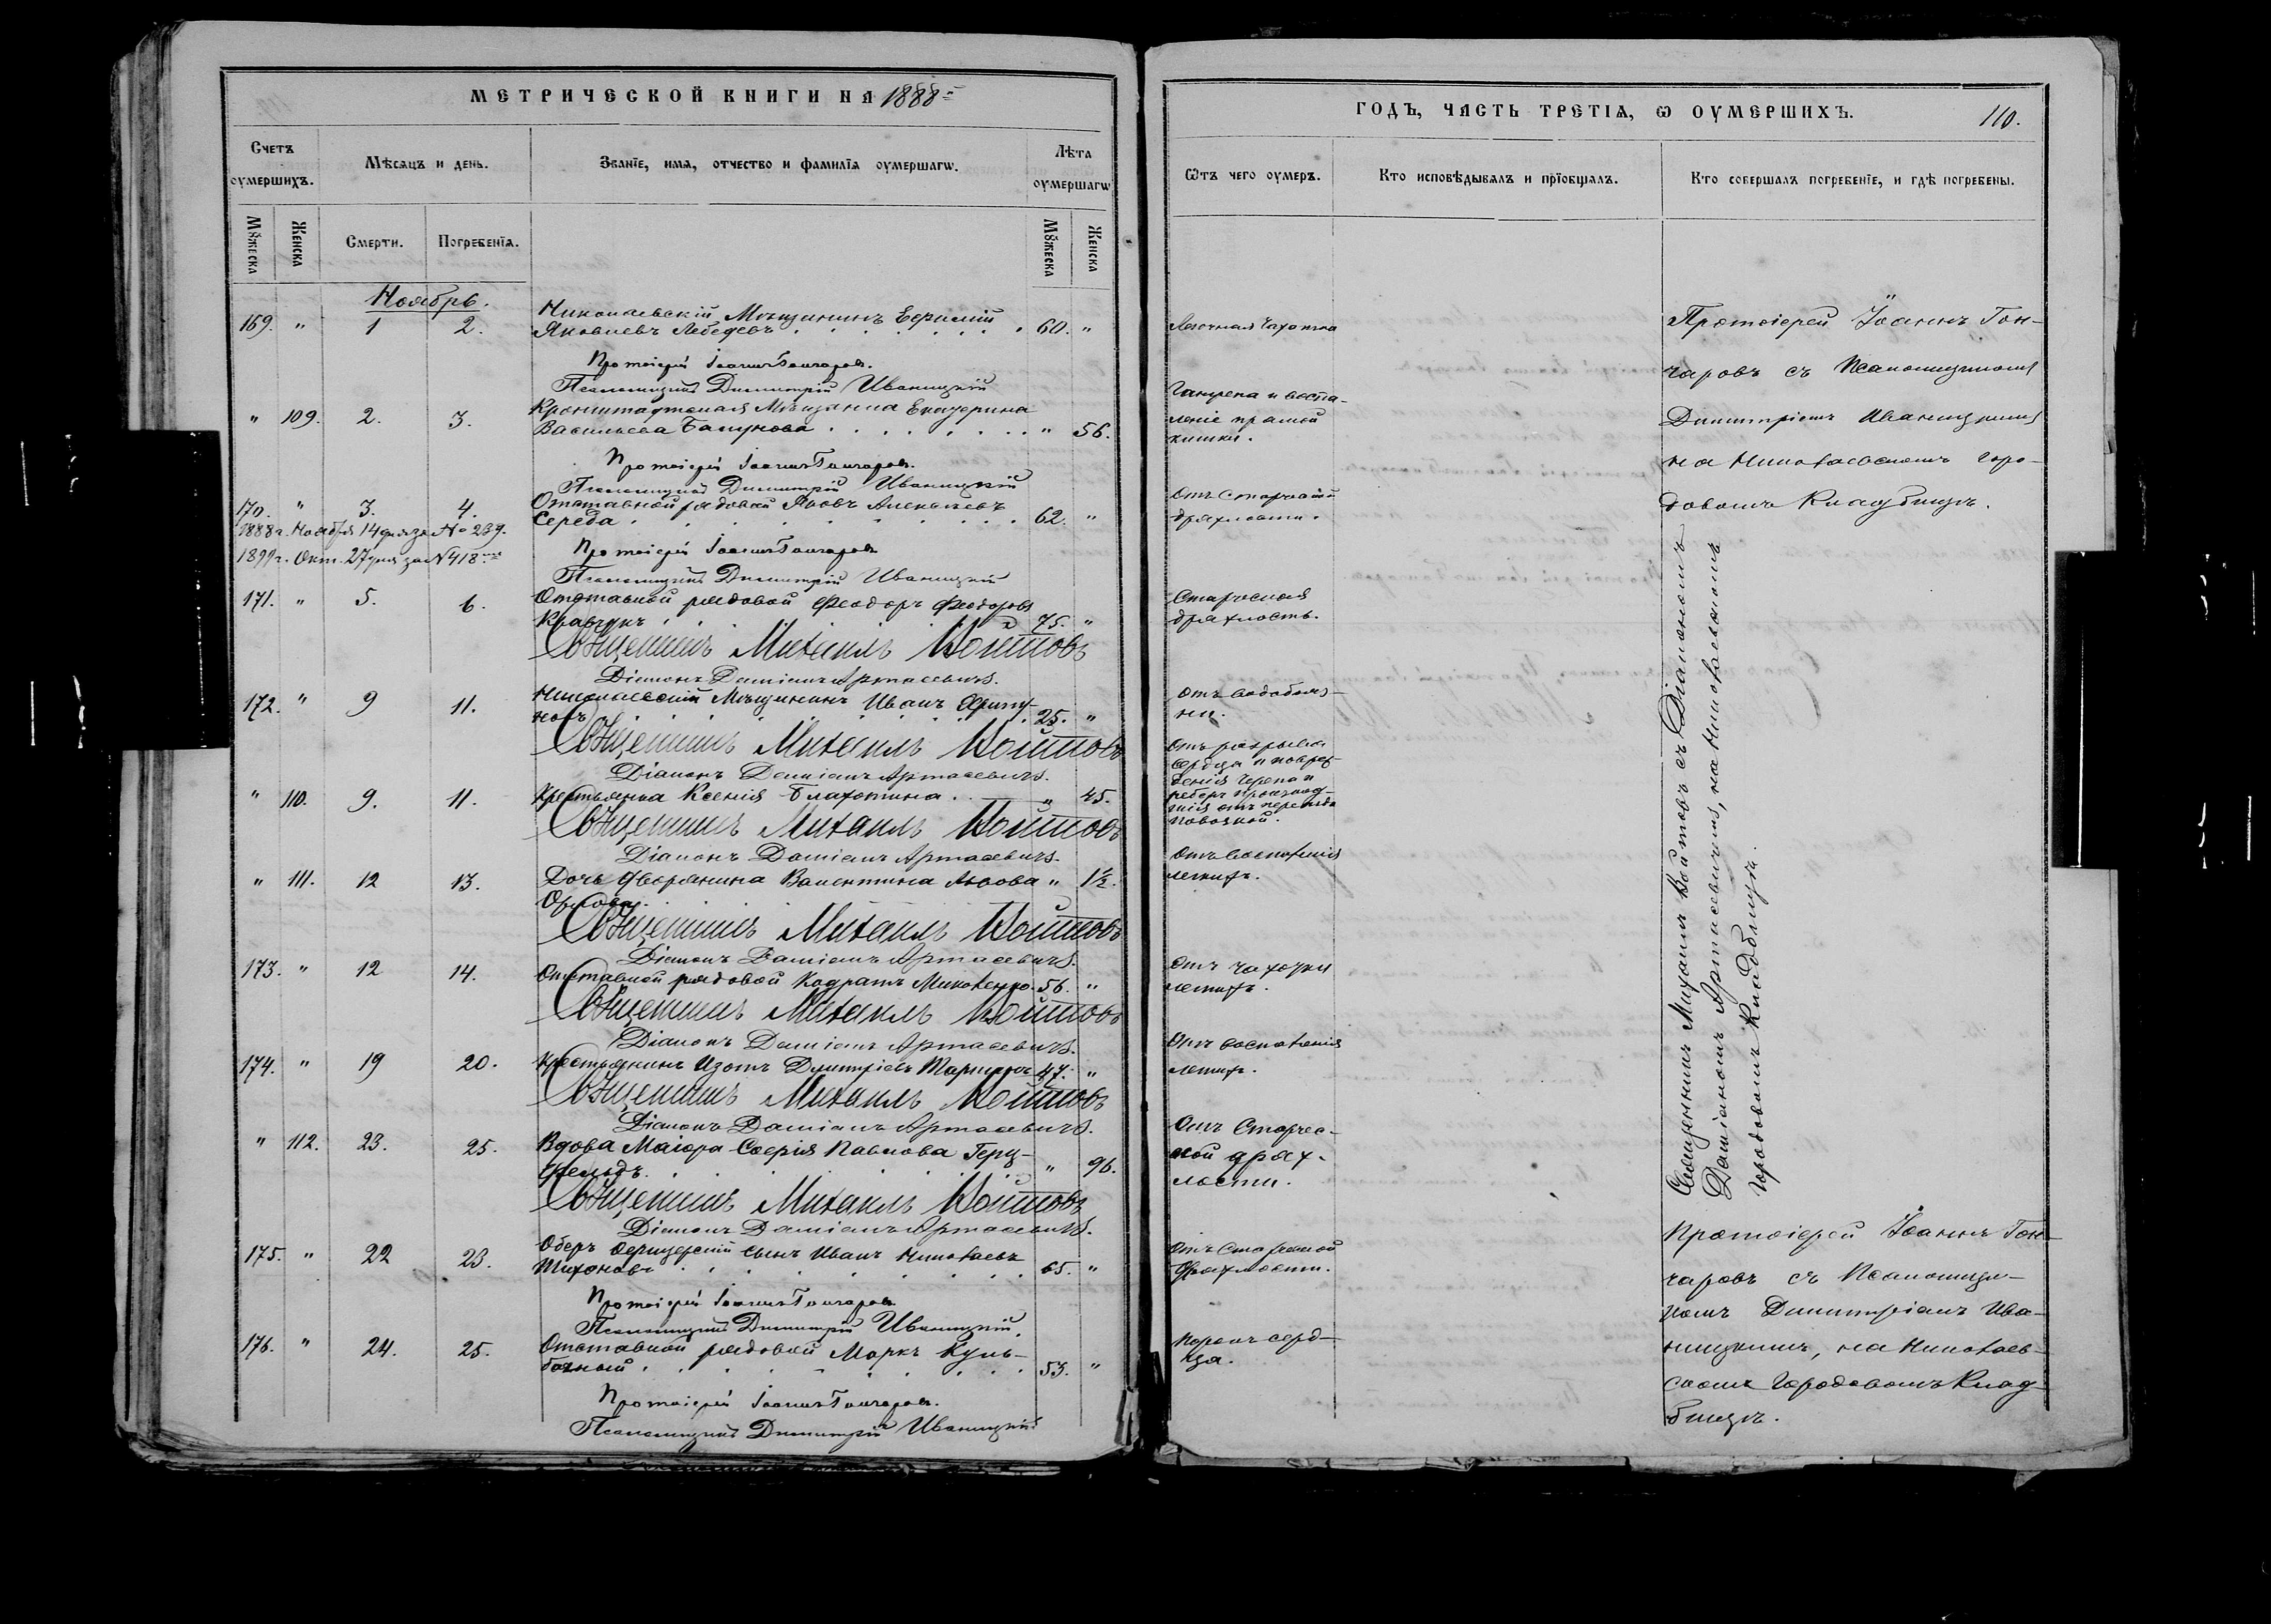 МЕТРИЧЕСКОЙ КНИГИ НА 1888
Счетъ оумершихъ.
Мѣсяцъ и день.
Званїе, имя, отчество и фамилїя оумершагѡ.
Лѣта оумершагѡ
Мꙋжеска
Женска
Смерти.
Погребенїя.
Мꙋжеска
Женска
Ноябрь.
169. " 1 2. Николаевскій Мѣщанинъ Ефимій
Яковлевъ Лебедевъ 60. "
Протоіерей Іоаннъ Гончаровъ.
Псаломщикъ Димитрій Иваницкій
" 109. 2. 3. Кронштадтская Мѣщанка Екатерина
Васильева " 56.
Протоіерей Іоаннъ Гончаровъ.
Псаломщикъ Димитрій Иваницкій
170. " 3. 4. Отставной рядовой Яковъ Алексѣевъ
Середа 62. "
1888 г. Ноября 14 дня за № 239.
1899 г. Окт. 27 дня за № 418
Протоіерей Іоаннъ Гончаровъ
Псаломщикъ Димитрій Иваницкій
171. " 5. 6. Отставной рядовой Феодоръ Феодоровъ
Кравчукъ 75. "
Священникъ Михаилъ Войтовъ
Діаконъ Даміанъ Артасевичъ.
172. " 9 11. Николаевскій Мѣщанинъ Иванъ
25. "
Священникъ Михаилъ Войтовъ
Діаконъ Даміанъ Артасевичъ.
" 110. 9. 11. Крестьянка Ксенія Блахотина. " 45.
Священникъ Михаилъ Войтовъ
Діаконъ Даміанъ Артасевичъ.
" 111. 12 13. Дочь дворянина Валентина Львова " 1½.
Орлова.
Священникъ Михаилъ Войтовъ
Діаконъ Даміанъ Артасевичъ.
173. " 12 14. Отставной рядовой Кодратъ Миколенко. 56. "
Священникъ Михаилъ Войтовъ
Діаконъ Даміанъ Артасевичъ.
174. " 19 20. Крестьянинъ Изотъ Димитріевъ 47. "
Священникъ Михаилъ Войтовъ
Діаконъ Даміанъ Артасевичъ.
" 112. 23. 25. Вдова Маіора Софія Павлова Герц-
фельдъ. " 96.
Священникъ Михаилъ Войтовъ
Діаконъ Даміанъ Артасевичъ.
175. " 22 23. Оберъ офицерскій сынъ Иванъ Николаевъ
Тихоновъ 65. "
Протоіерей Іоаннъ Гончаровъ
Псаломщикъ Димитрій Иваницкій.
176. " 24. 25. Отставной рядовой Маркъ Куль-
бачный 53. "
Протоіерей Іоаннъ Гончаровъ.
Псаломщикъ Димитрій Иваницкій
ГОДЪ, ЧАСТЬ ТРЕТІѦ, Ѡ ОУМЕРШИХЪ.
110.
Ѿтъ чего оумеръ.
Кто исповѣдывалъ и прїобщалъ.
Кто совершалъ погребенїе, и гдѣ погребены.
Легочная чахотка
Гангрена и воспа-
леніе прямой
кишки.
Отъ старческой
дряхлости.
Старческая
дряхлость.
Отъ водобояз-
ни.
Отъ разрыва
сердца и повреж-
денія черепа и
реберъ
отъ переезда
повозкой.
Отъ воспаленія
легкихъ.
Отъ чахотки
легкихъ.
Отъ воспаленія
легкихъ.
Отъ старчес-
кой дрях-
лости.
Отъ старческой
дряхлости.
Порокъ серд-
ца.
Протоіерей Іоаннъ Гон-
чаровъ съ Псаломщикомъ
Димитріемъ Иваницкимъ
на Николаевскомъ горо-
довомъ Кладбищѣ.
Священникъ Михаилъ Войтовъ съ Діакономъ
Даміаномъ Артасевичемъ, на Николаевскомъ
городовомъ Кладбищѣ.
Протоіерей Іоаннъ Гон-
чаровъ съ Псаломщи-
комъ Димитріемъ Ива-
ницкимъ, на Николаев-
скомъ Городовомъ Клад-
бищѣ.